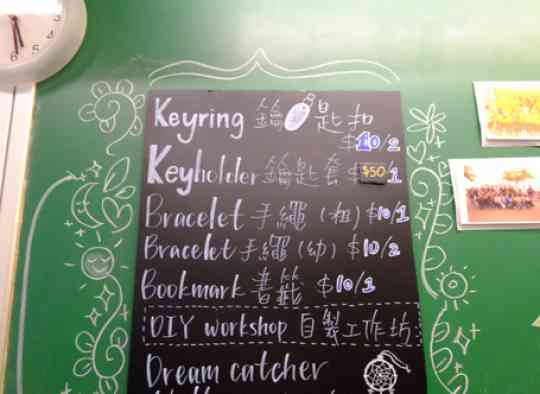 Keyring 鑰匙扣
$10/2
Keyholder 鑰匙套 $50/1
Bracelet 手繩 (粗) $10/1
Bracelet 手繩 (幼) $10/2
Bookmark 書籤 $10/1
DIY workshop 自製工作坊
Dream catcher